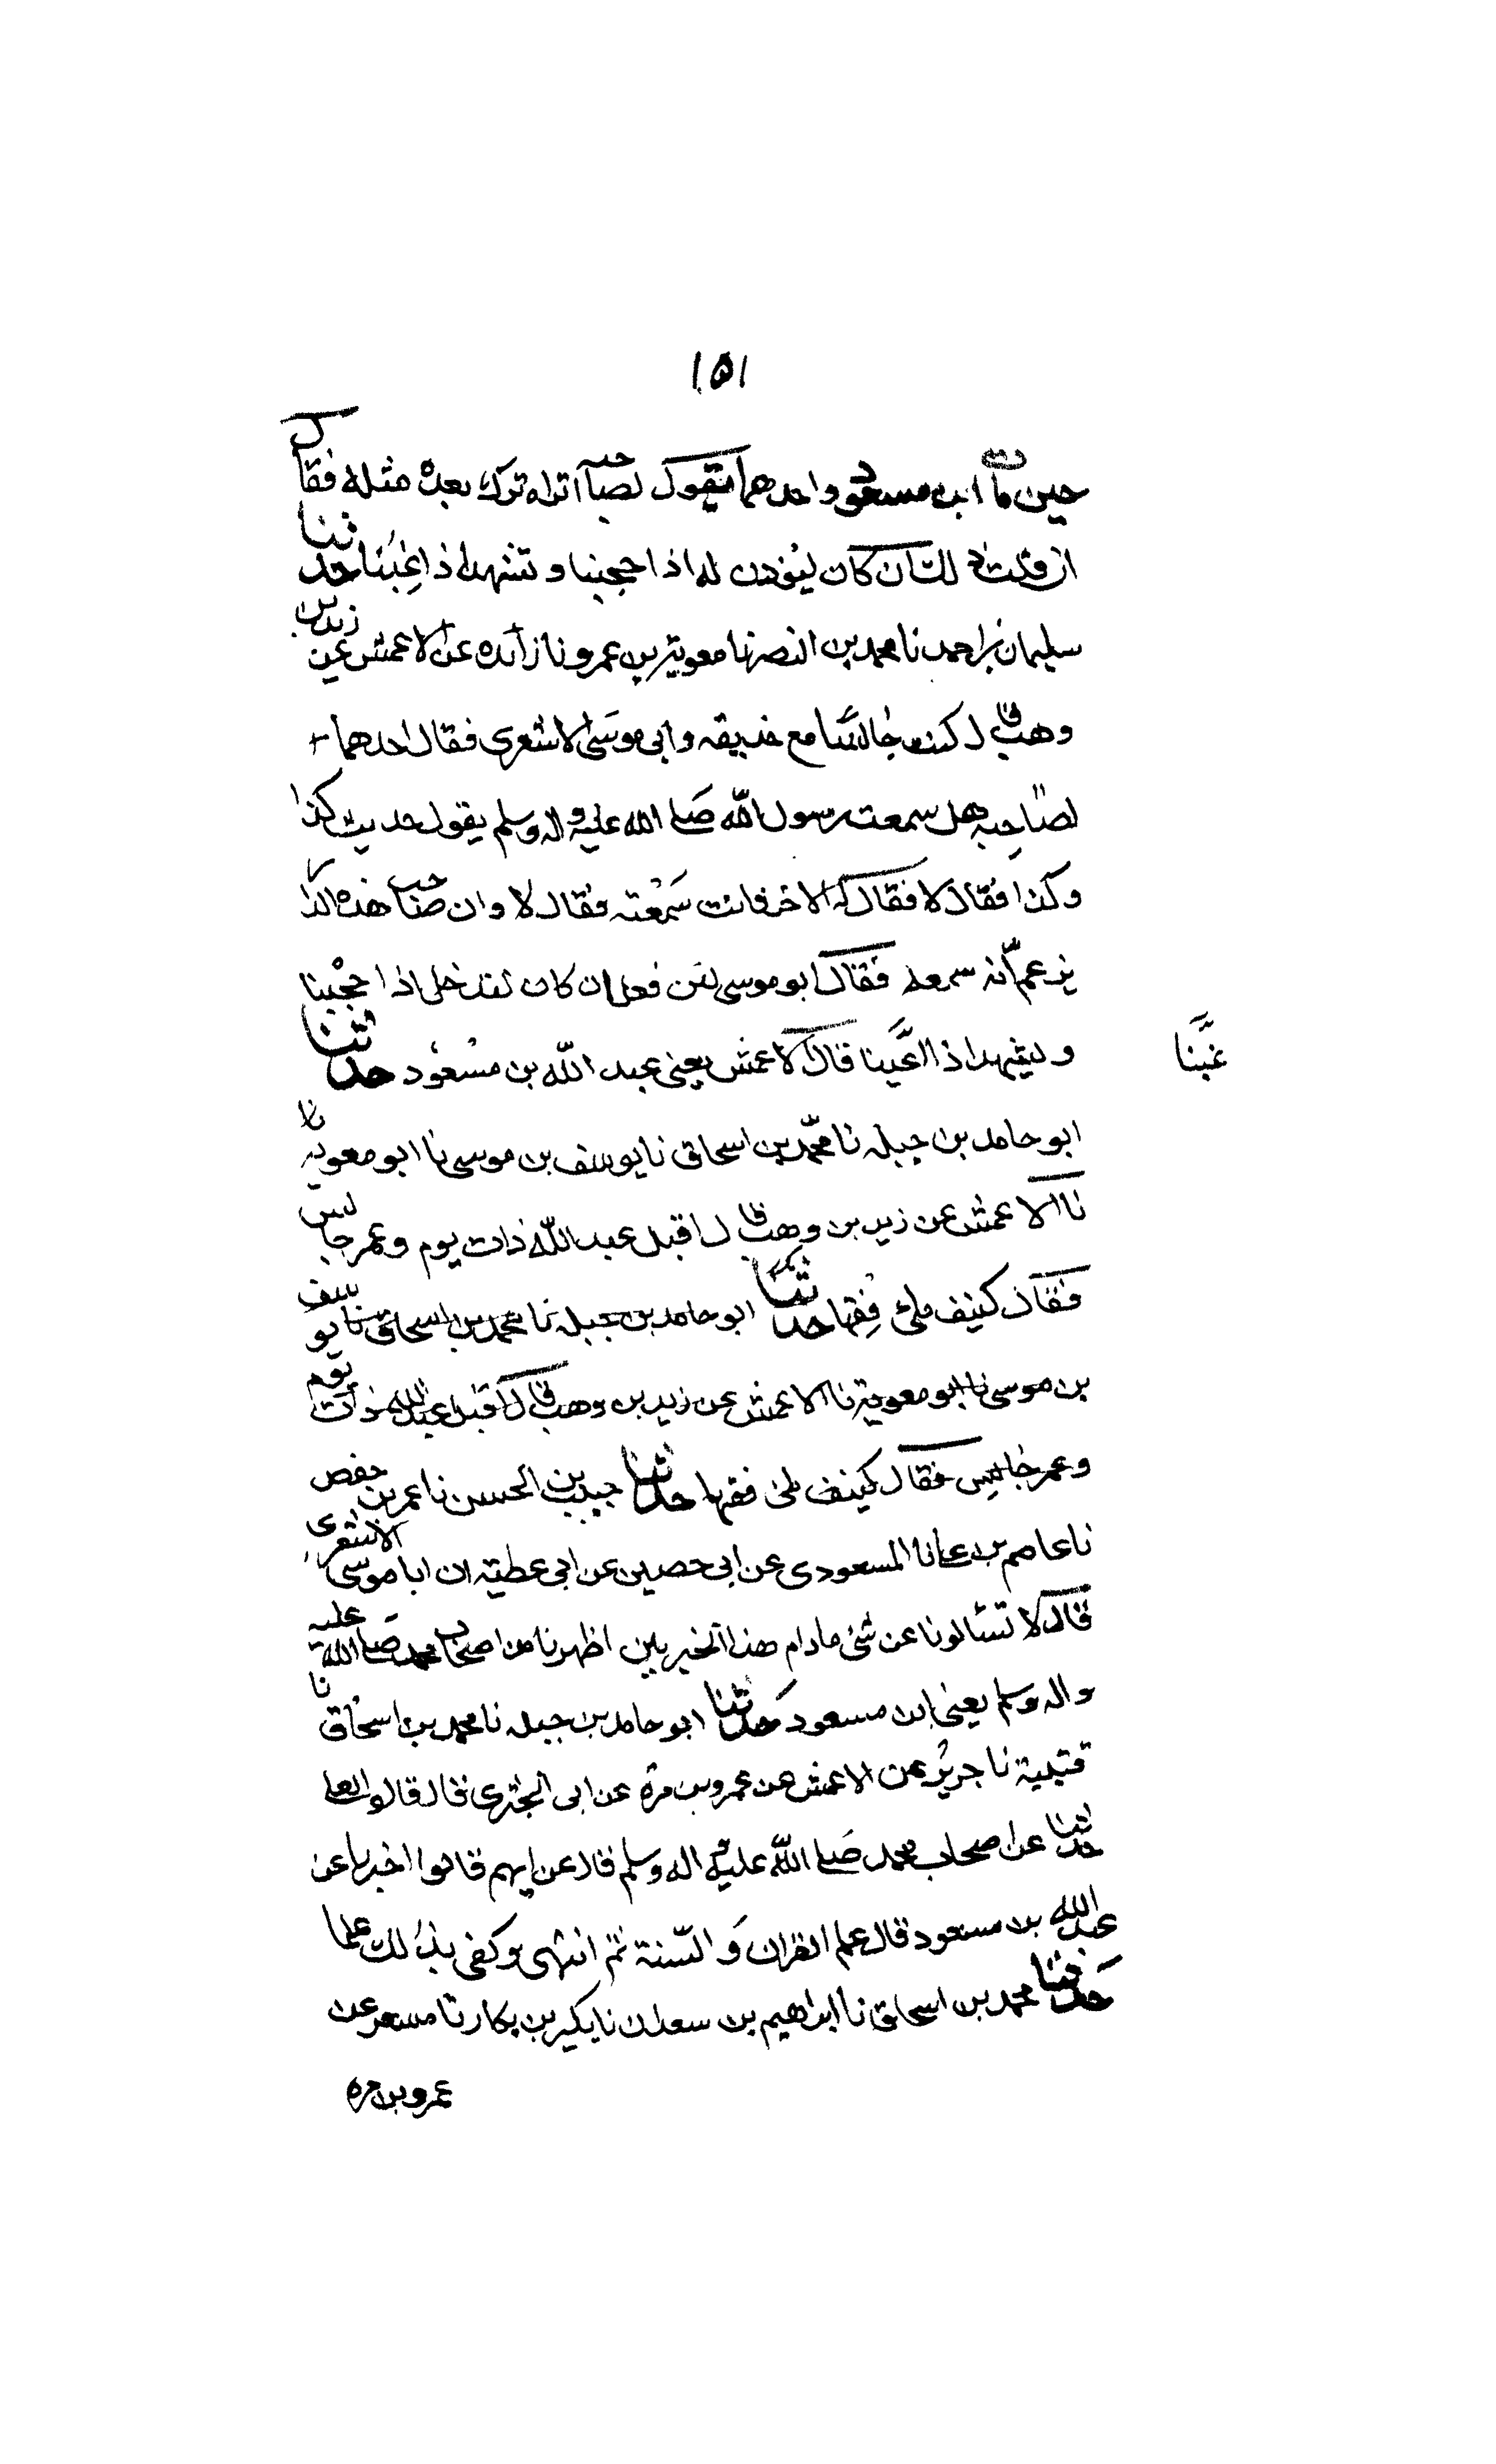 ١٥١
حين مات ابن مسعود واحدهما يقول لصاحبه اتراه ترك بعده مثله فقال
ان قلت ذلك ان كان ليؤذن له اذا حجبنا وتشهد اذا غبنا حدثنا
سليمان بن احمد نا محمد بن النضر نا معوية بن عمرو نا زائده عن الاعمش عن زيد بن
وهب قال كنت جالسا مع حذيفه وابي موسى الاشعرى فقال احدهما
لصاحبه هل سمعت رسول الله صلے الله عليه واله وسلم يقول حديث كذا
وكذا فقال لا فقال له الاخر فانت سمعته فقال لا وان صاحب هذه الدا
يزعم انه سمعه فقال ابو موسى لئن فعل ان كان لقد خلى اذا حجبنا
وليشهد اذا الغبنا قال الاعمش يعنى عبد الله بن مسعود حدثنا
غبنا
ابو حامد بن جبله نا محمد بن اسحاق نا يوسف بن موسى نا ابو معوية نا
نا الاعمش عن زيد بن وهب قال اقبل عبد الله ذات يوم وعمر جالس
فقال كنيف ملئ فقها حدثنا ابو حامد بن جبله نا محمد بن اسحاق نا يوسف
بن موسى نا ابو معوية نا الاعمش عن زيد بن وهب قال اقبل عبد الله ذات يوم
وعمر جالس فقال كنيف ملئ فقها حدثنا حبيب بن الحسن نا عمر بن حفص
نا عاصم بن علے نا المسعودى عن ابى حصين عن ابى عطيته ان ابا موسى الاشعرى
قال لا تسئالونا عن شئ مادام هذا الخبر بين اظهرنا من اصحاب محمد صلے الله عليه
واله وسلم يعنى ابن مسعود حدثنا ابو حامد بن جبله نا محمد بن اسحاق نا
قتيبة نا جرير عن الاعمش عن عمرو بن مره عن ابى البخترى قال قالوا لعلے
حدثنا عن اصحاب محمد صلے الله عليه واله وسلم قال عن ايهم قالوا اخبرنا عن
عبد الله بن مسعود قال علم القران و السنة ثم انتهى وكفى بذلك علما
حدثنا محمد بن اسحاق نا ابراهيم بن سعدان نا بكير بن بكار نا مسعر عن
عمرو بن مره